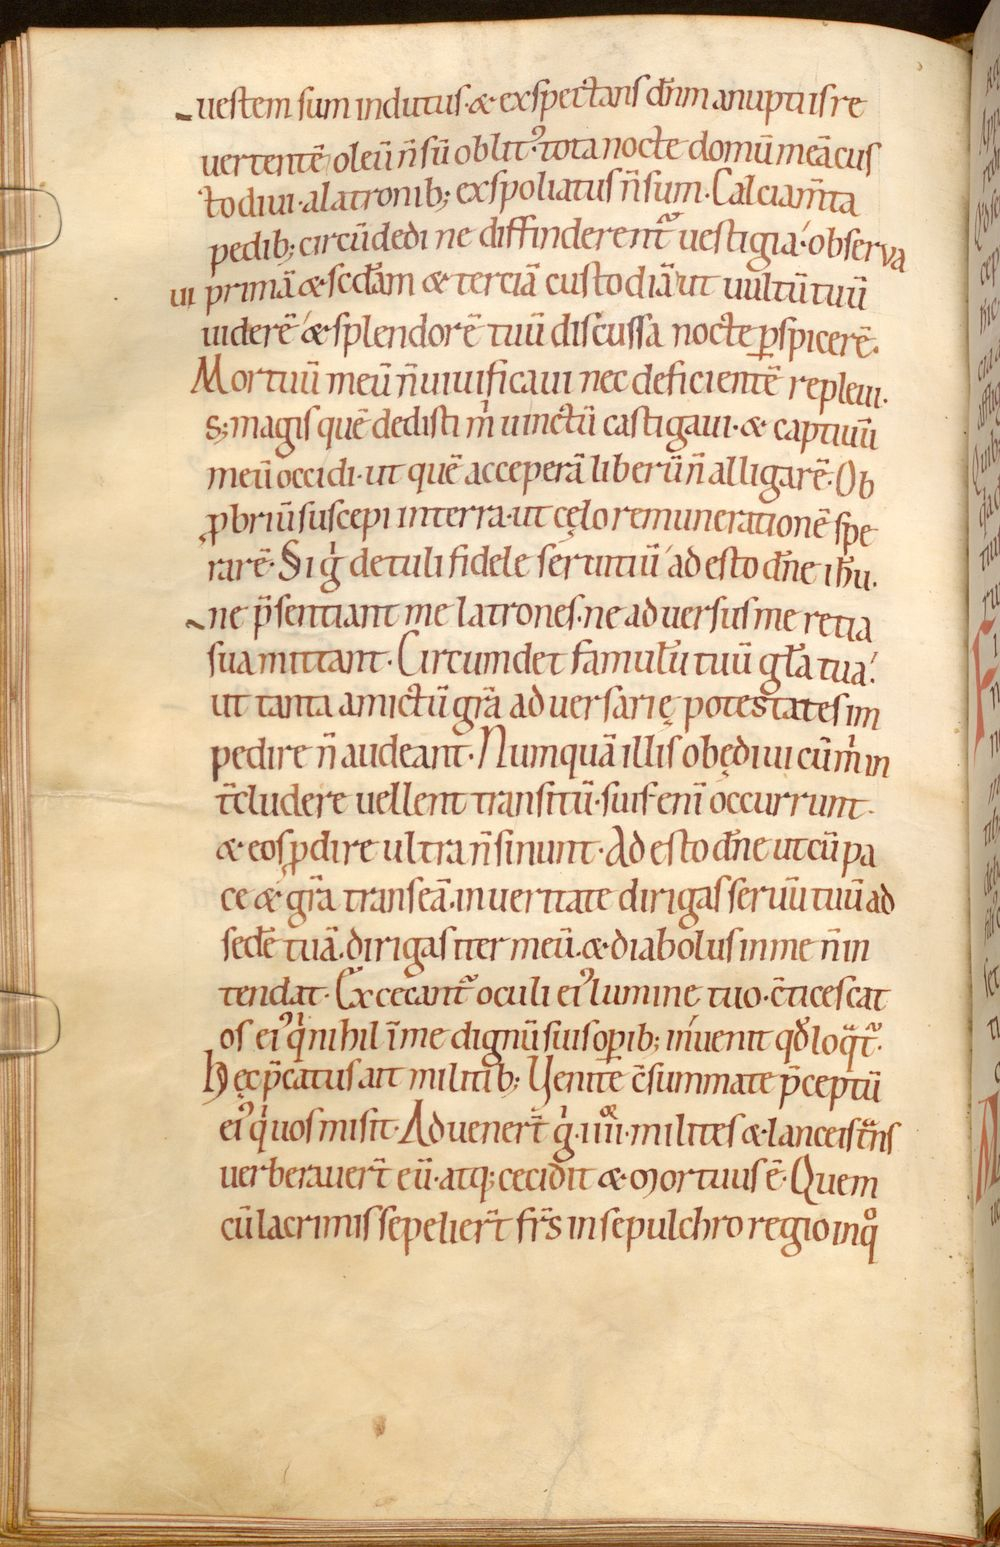 uestem sum indutus· & exspectans dn̄m anuptiis re
uertentē oleū n̄ sū oblitꝰ· tota nocte domū meā cus
todiui· alatronib; exspoliatus n̄ sum· Calciam̄ta
pedib; circūdedi ne diffinderent᷑ uestigia· obserua
ui primā & scd̄am & terciā custodiā ut uultū tuū
uiderē & splendorē tuū discussa nocte ꝑspicerē·
Mortuū meū n̄ uiuificaui nec deficientē repleui·
S; magis quē dedisti m̓ uinctū castigaui· & captiuū
meū occidi· ut quē acceperā liberū n̄ alligarē· Ob
ꝓbriū suscepi interra· ut cęlo remunerationē spe
rarē· Si g̓ detuli fidele seruitiū adesto dn̄e ih̄u·
ne p̄sentiant me latrones· ne aduersus me retia
sua mittant· Circumdet famulū tuū gl̄a tua·
ut tanta amictū gr̄a aduersarię potestates im
pedire n̄ audeant· Numquā illis obędiui cū m̓ in
t̄cludere uellent transitū· suis enī occurrunt·
& eos ꝓdire ultra n̄ sinunt· Adesto dn̄e ut cū pa
ce & gr̄a transeā· in ueritate dirigas seruū tuū ad
sedē tuā· dirigas iter meū· & diabolus in me n̄ in
tendat· Excecant᷑ oculi eiꝰ lumine tuo· c̄ticescat
os eiꝰ q̓ nihil ī me dignū suis oꝑib; inuenit qd̄ loq̄t᷑·
Hęc p̄catus ait militib; Uenite c̄summate p̄ceptū
eiꝰ q̓ uos misit· Aduenert̄ g̓ ·iiii· milites & lanceis
uerberauert̄ eū· atq; cecidit & mortuus ē· Quem
cū lacrimis sepeliert̄ fr̄s in sepulchro regio inqͦ